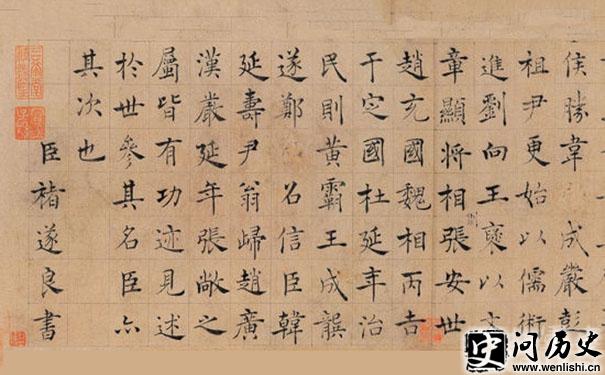 侯勝韋成嚴彭
祖尹更始以儒術
進劉向王襃以文
章顯將相張安世
趙充國魏相丙吉
于定國杜延年治
民則黃霸王成龔
遂鄭召信臣韓
延壽尹翁歸趙廣
漢嚴延年張敞之
屬皆有功迹見述
於世參其名臣亦
其次也
臣褚遂良書
史问历史
www.wenlishi.cn